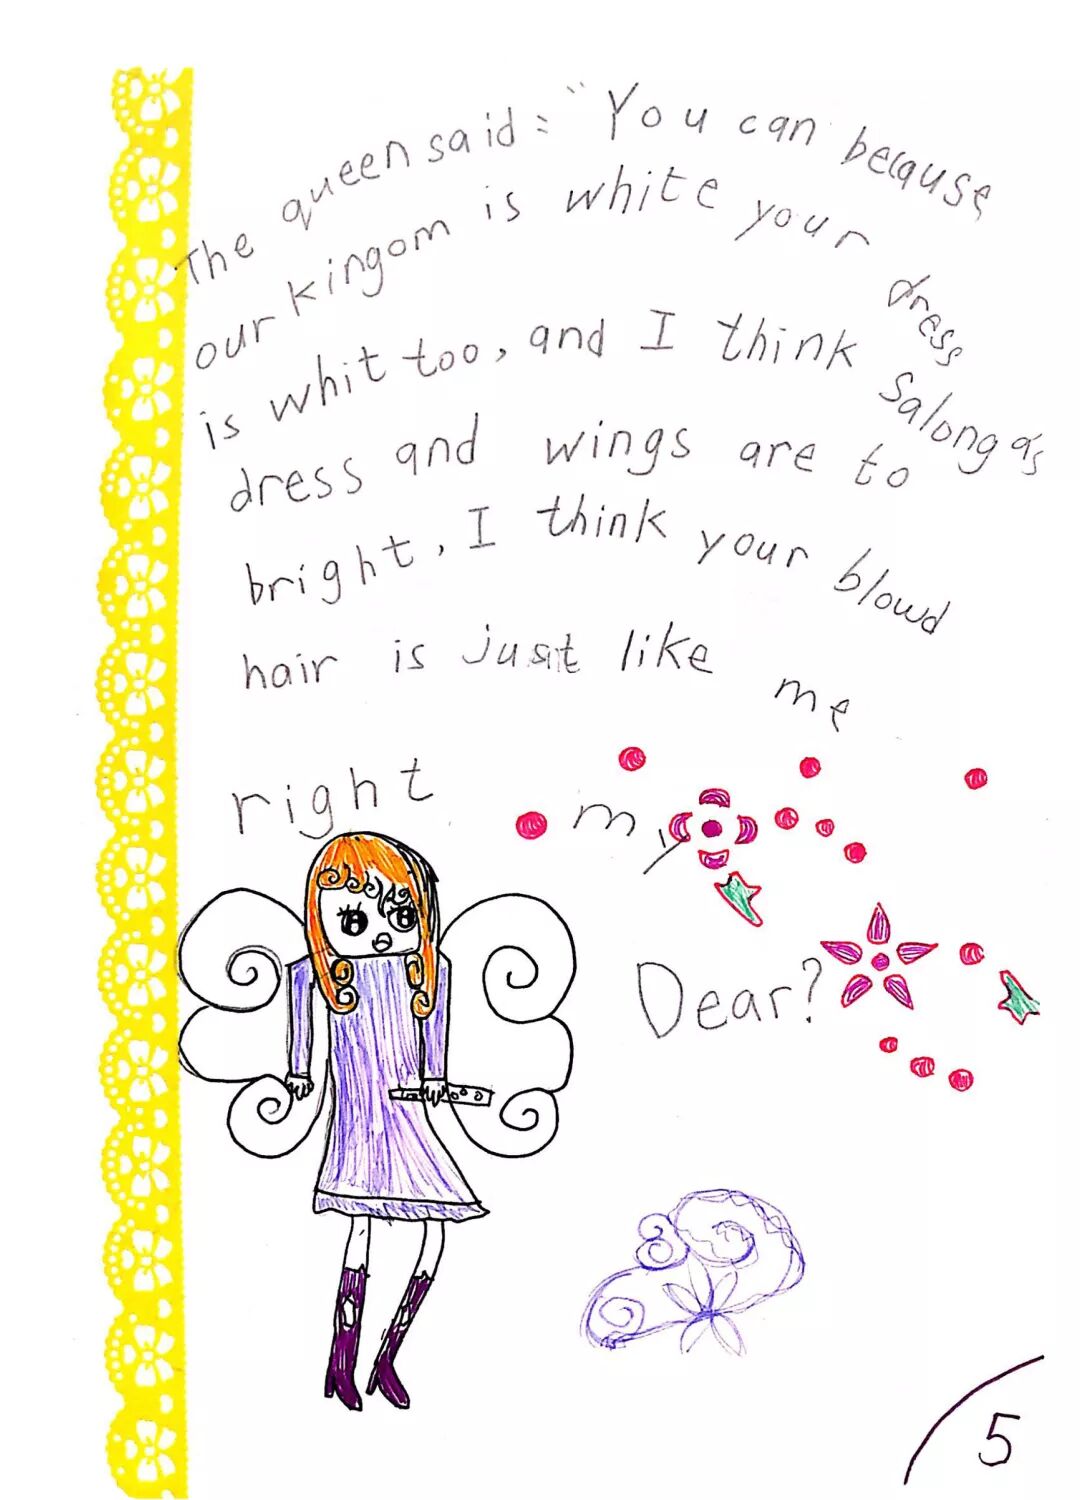 The queen said: "You can because
our kingom is white your dress
is whit too, and I think Salongas
dress and wings are to
bright, I think your blowd
hair is just like me
right my
Dear?
5